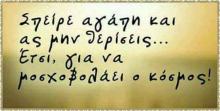 Σπείρε αγάπη και
ας μην θερίσεις...
Έτσι, για να
μοσχοβολάει ο κόσμος!